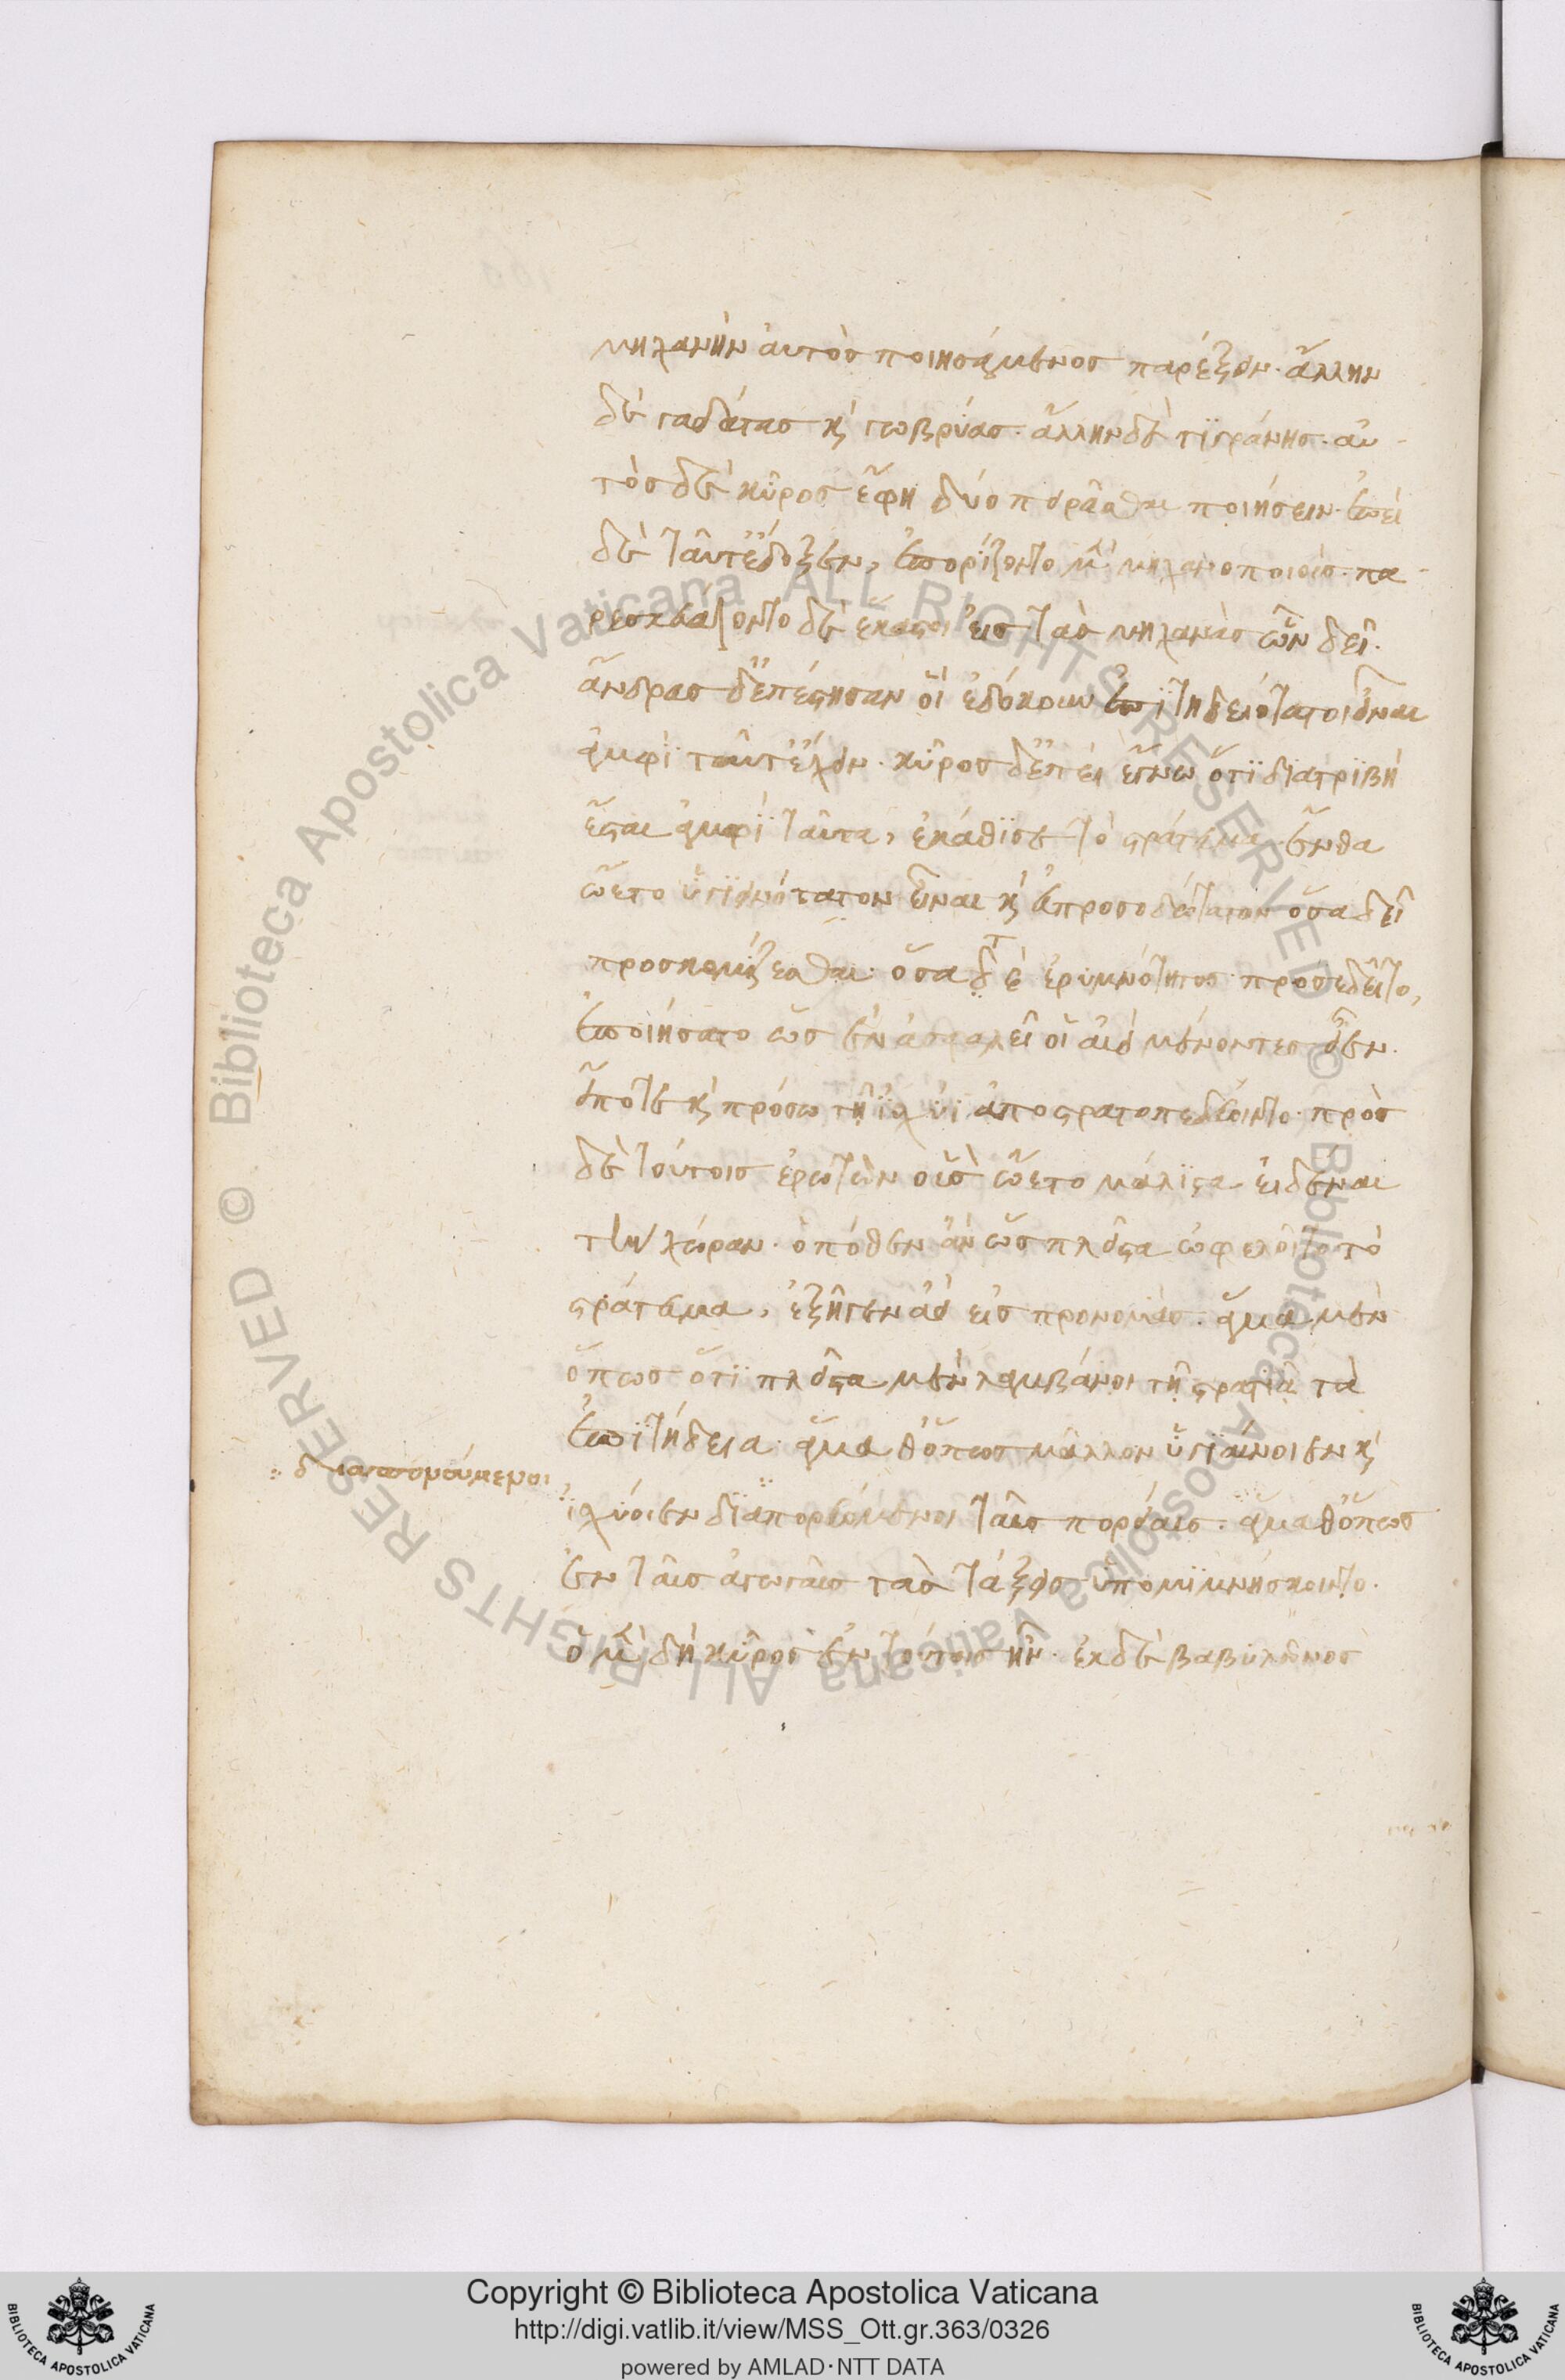 μηχανὴν αὐτὸς ποιησάμενος παρέξειν· ἄλλην
δὲ γαδάτας κ̀ γωβρύας· ἄλλην δὲ τϊγράνης· αὐ-
τὸς δὲ κῦρος ἔφη δύο πειρᾶσθαι ποιήσειν· ἐπεὶ
δὲ ταῦτ' ἔδοξεν, ἐπορίζοντο μὲν μηχανοποιοὺς· πα-
ρεσκευάζοντο δὲ ἕκαστοι εἰς τὰς μηχανὰς ὧν δεῖ·
ἄνδρας δ' ἐπέστησαν οἳ ἐδόκουν ἐπϊτηδειότατοι εἶναι
ἀμφὶ ταῦτ' ἔχειν· κῦρος δ' ἐπεὶ ἔγνω ὅτϊ διατρϊβὴ
ἔσται ἀμφϊ ταῦτα, ἐκάθϊσε τὸ στράτευμα ἔνθα
ᾤετο ὑγϊεινότατον εἶναι κ̀ εὐπροσοδώτατον ὅσα δεῖ
προσκομίζεσθαι· ὅσα δὲ ἐρυμνότητος προσεδεῖτο,
ἐποιήσατο ὡς ἐν ἀσφαλεῖ οἳ αἰεὶ μένοντες εἶεν·
εἴποτε κ̀ πρόσω τῇ ἰσχύϊ ἀποστρατοπεδεύοιντο· πρὸς
δὲ τούτοις ἐρωτῶν οὓς ᾤετο μάλϊστα εἰδέναι
τὴν χώραν· ὁπόθεν ἂν ὡς πλεῖστα ὠφελοῖτο τὸ
στράτευμα, ἐξῆγεν ἀεὶ εἰς προνομὰς· ἅμα μὲν
ὅπως ὅτϊ πλεῖστα μὲν λαμβάνοι τῇ στρατϊᾷ τὰ
ἐπϊτήδεια· ἅμα θ' ὅπως μᾶλλον ὑγϊαίνοιεν κ̀
∴ διαπορούμενοι
ἰσχύοιεν δϊαπορευόμενοι ταῖς πορείαις· ἅμα θ' ὅπως
ἐν ταῖς ἀγωγαῖς τὰς τάξεις ὑπομϊμνήσκοιντο·
ὁ μὲν δὴ κῦρος ἐν τούτοις ἦν· ἐκ δὲ βαβυλῶνος
Copyright © Biblioteca Apostolica Vaticana
http://digi.vatlib.it/view/MSS_Ott.gr.363/0326
powered by AMLAD·NTT DATA